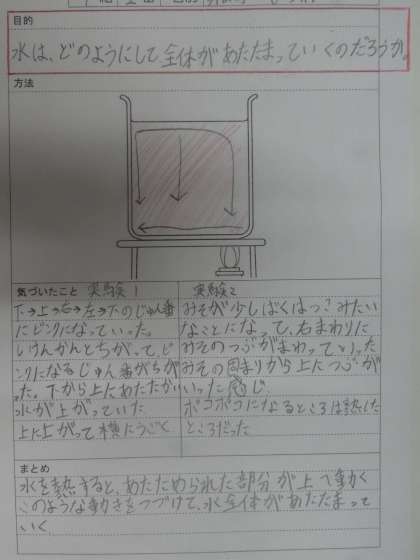 目的
水は、どのようにして全体があたたまっていくのだろうか。
方法
気づいたこと 実験1
下→上→右→左→下のじゅん番
にピンクになっていった。
しけんかんとちがって、ピ
ンクになるじゅん番がちが
った。下から上にあたたかい
水が上がっていた
上に上がって横にうごく
実験2
みそが少しばくはつ?みたい
なことになって、右まわりに
みそのつぶがまわっていった
みその固まりから上につぶが
いった感じ
ポコポコになるところは熱した
ところだった
まとめ
水を熱すると、あたためられた部分が上へ動く
このような動きをつづけて、水全体があたたまって
いく